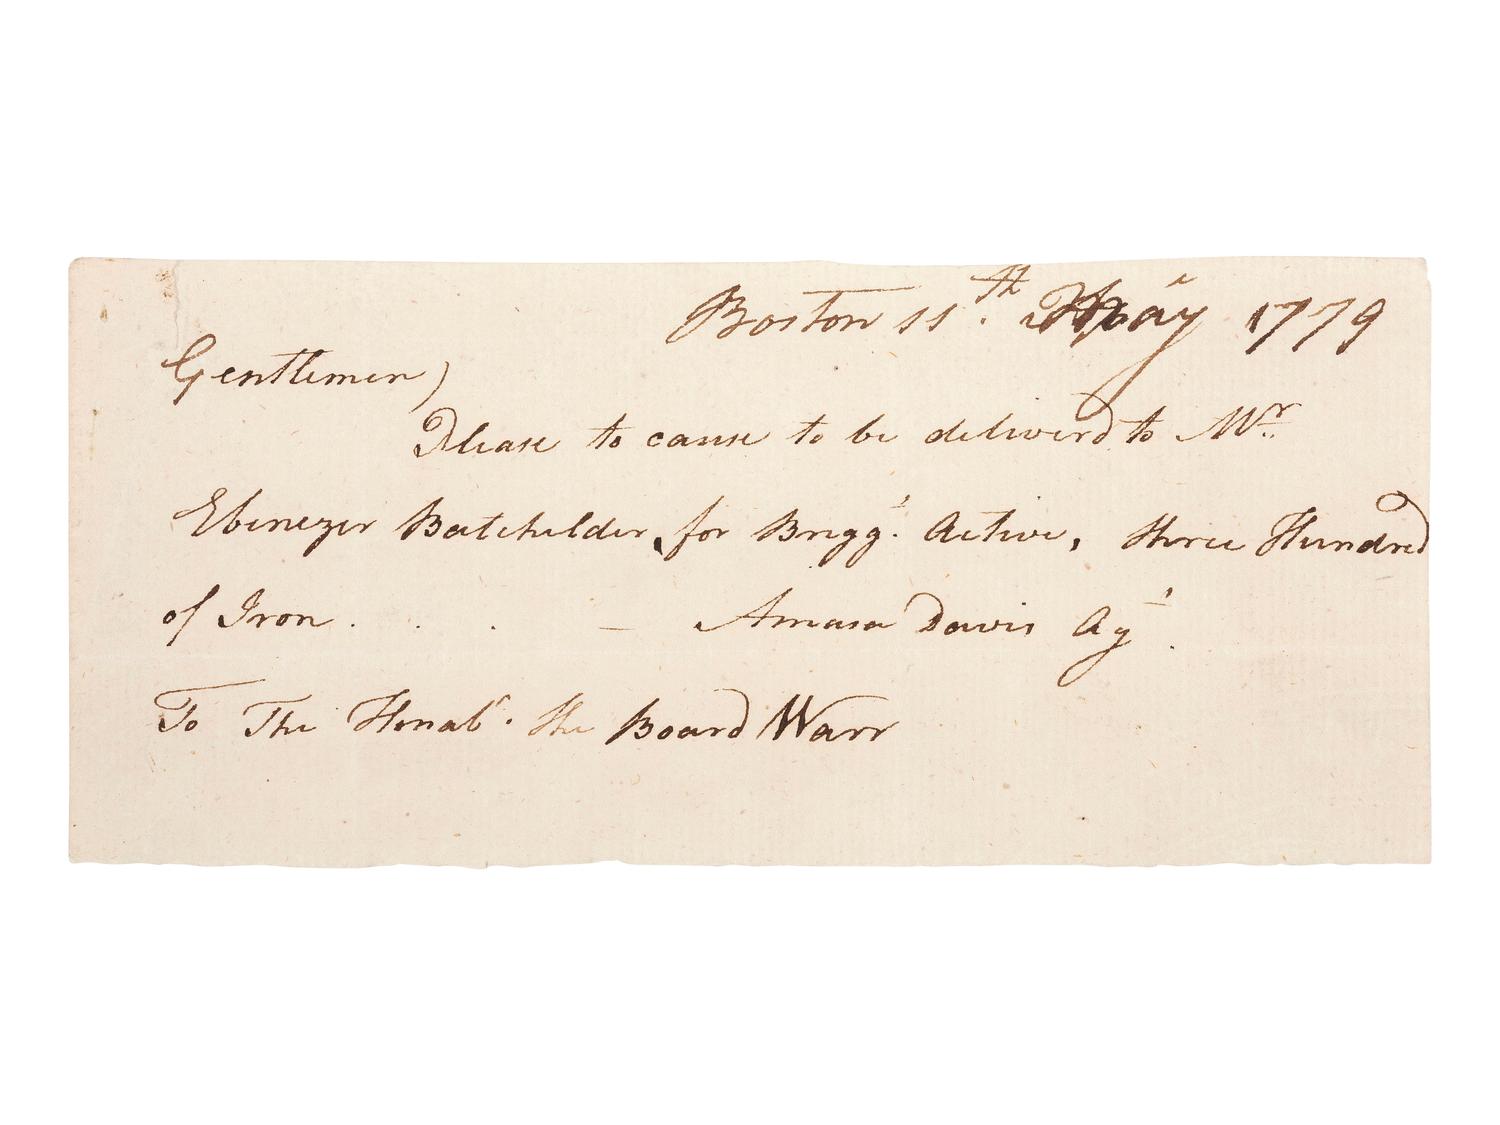 Boston 11th. May 1779
Gentlemen)
Please to cause to be deliverd to Mr.
Ebenezer Batchelder, for Brigg. Active, three Hundred
of Iron . . . — Amasa Davis Agt.
To The Honabl. the Board Warr